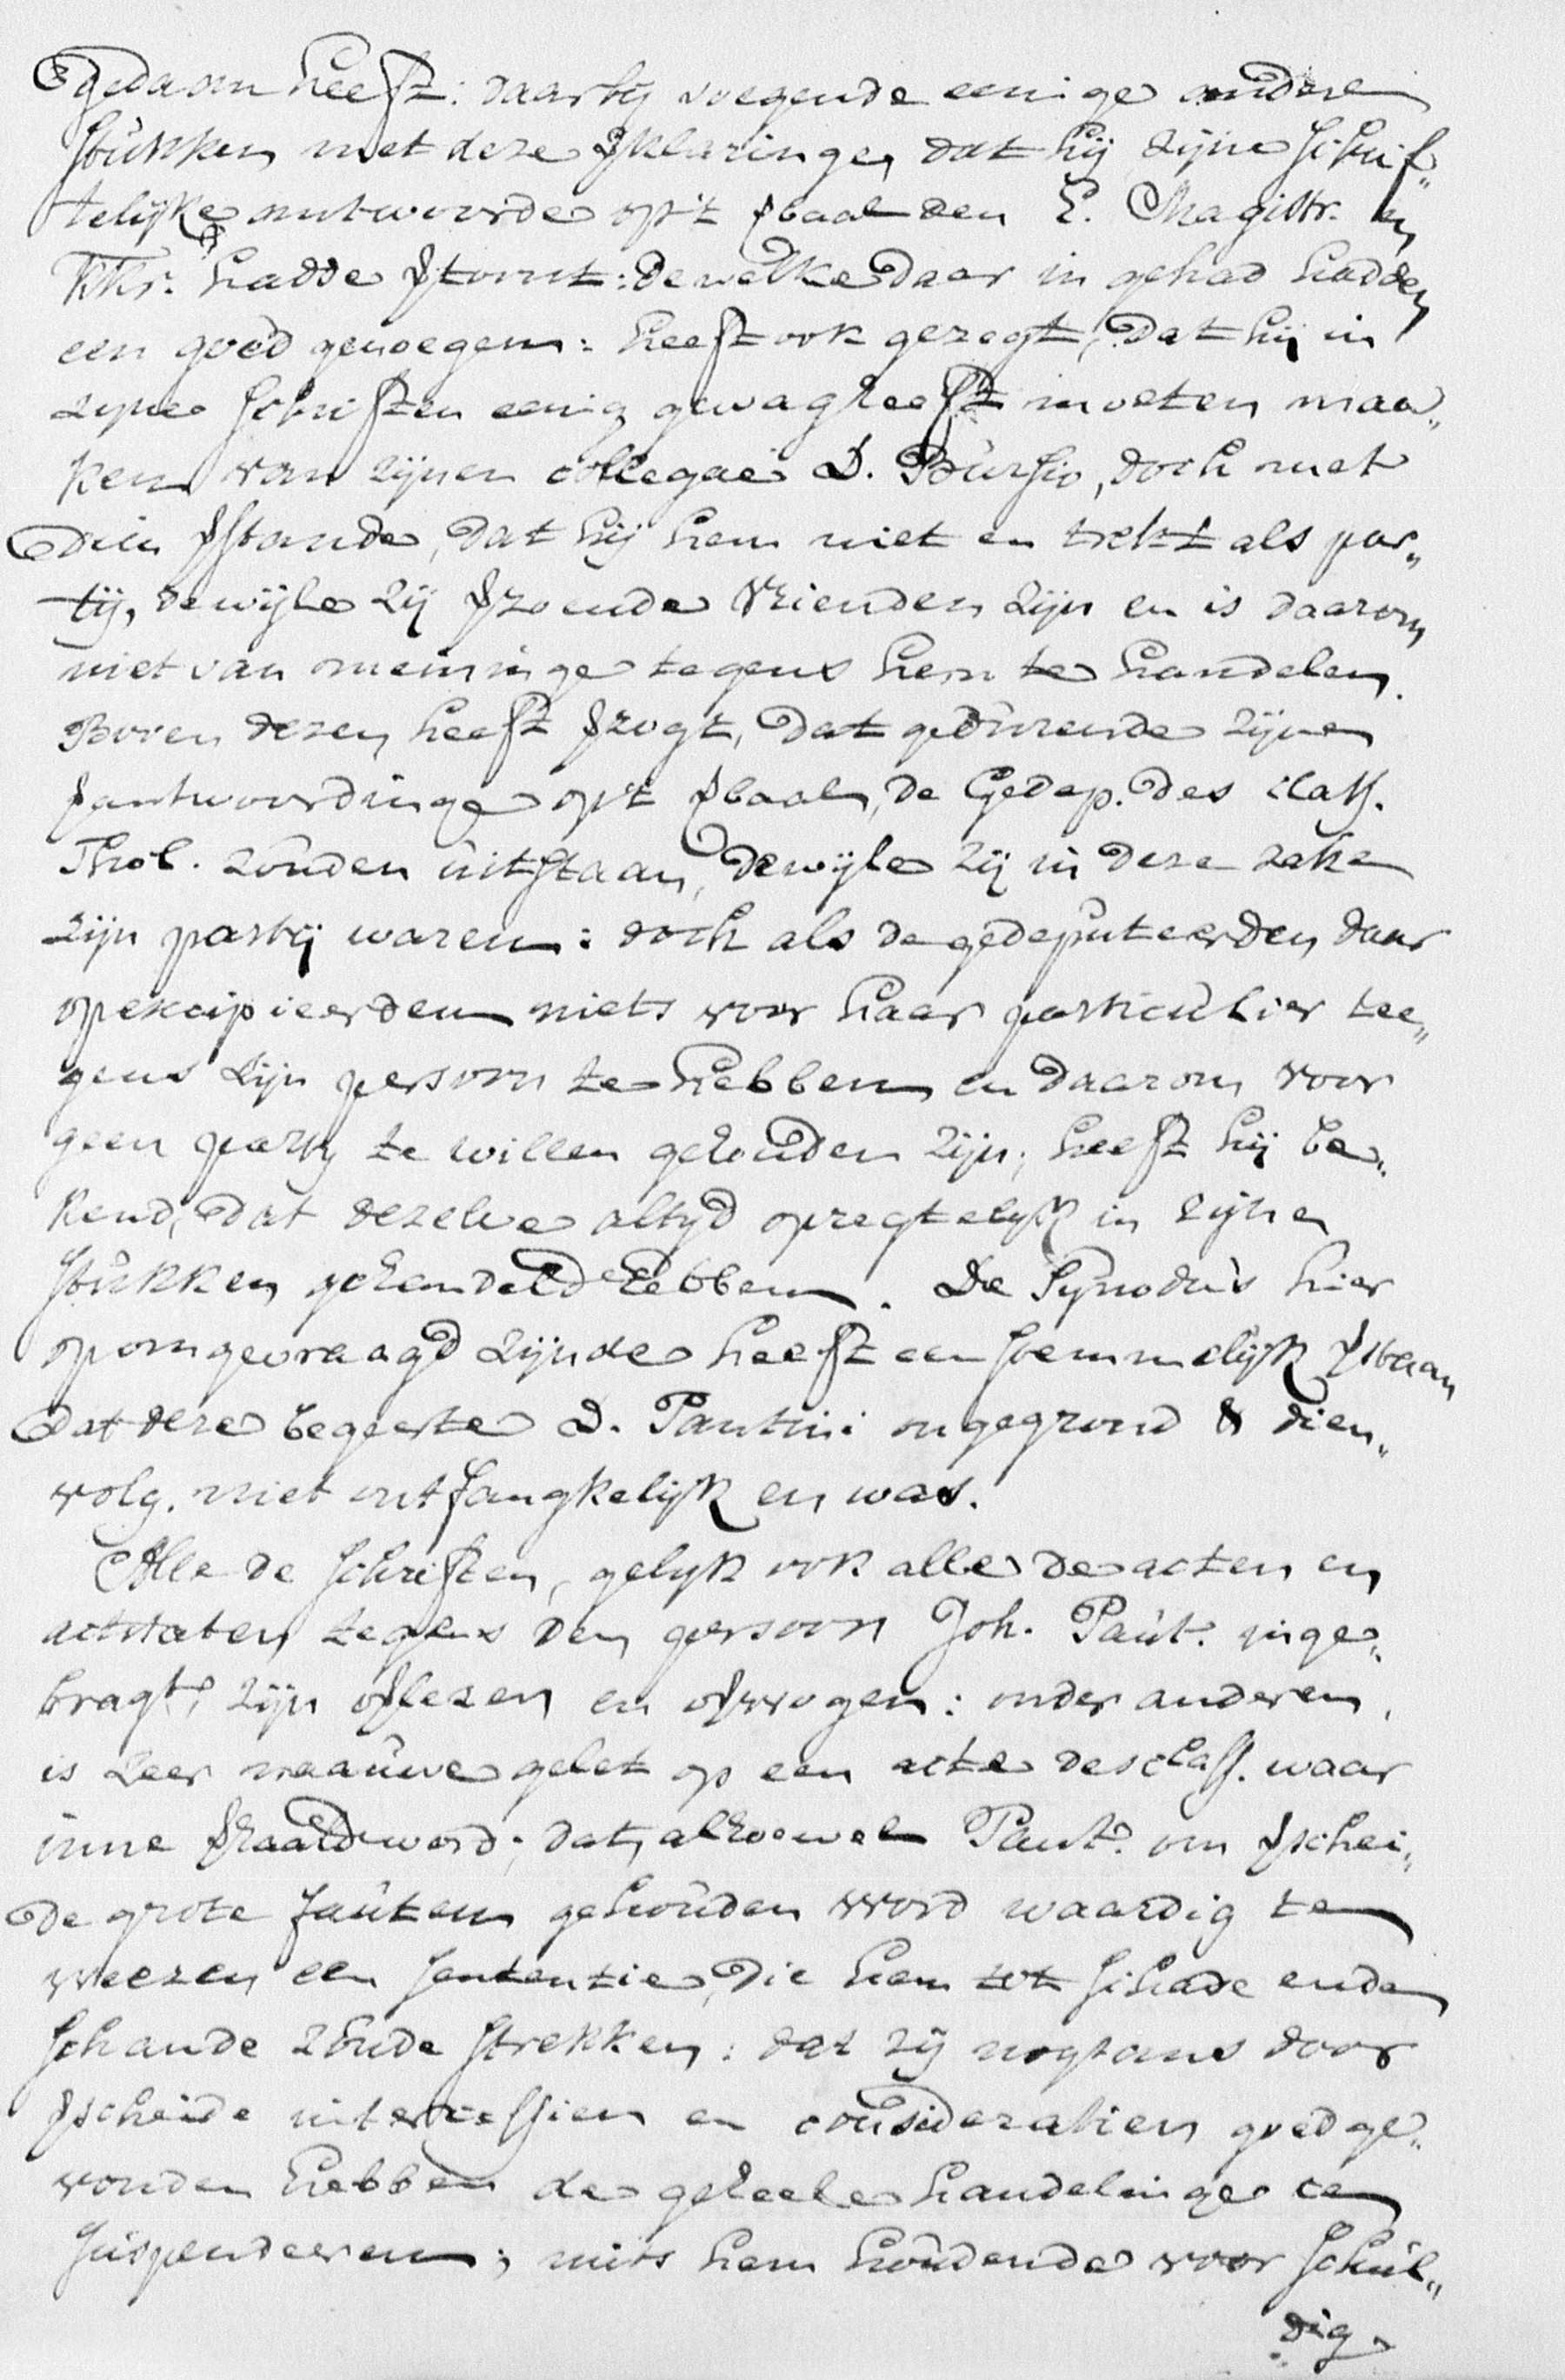 gedaan heeft: daarbij voegende eenige andere
stukken met deze ƒklaringe, dat hij zijne schrif„
telijke antwoorde op't ƒbaal den E. Magistr. en
Kkr. hadde ƒtoont: dewelke daar in gehad hadden
een goed genoegen: heeft ook gezegt, dat hij in
zijne schriften eenig gewag heeft moeten maa„
ken van zijnen collegae D. Bursio, doch met
dien ƒstande, dat hij hem niet en trekt als par„
tij, dewijle zij ƒzoende vrienden zijn en is daarom
niet van meininge tegens hem te handelen.
Boven dezen heeft ƒzogt, dat gedurende zijne
ƒantwoordinge op't ƒbaal, de Gedep. des class.
Thol. zouden uitstaan, dewijle zij in deze zake
zijn partij waren: doch als de gedeputeerden daar
op excipieerden niets voor haar particulier tee„
gens zijn persoon te hebben en daarom voor
geen party te willen gehouden zijn, heeft hij be„
kend, dat dezelve altyd opregtelijk in zijne
stukken gehandeld hebben. De Synodus hier
op omgevraagd zijnde heeft eenstemmelijk ƒstaan
dat deze begeerte D. Pautini ongegrond & dien„
volg. niet ontfangkelijk en was.
Alle de schriften, gelyk ook alle de acten en
actitaten tegens den persoon Joh. Paut. inge„
bragt, zijn oƒlezen en oƒwogen: onder anderen,
is zeer naauwe gelet op een acte des class. waar
inne ƒhaald word; dat, alhoewel Paut. om ƒschei„
de grote fauten gehouden word waardig te
weezen een sententie, die hem tot schade ende
schande zoude strekken: dat zij nogtans door
ƒscheide intercessien en consideratien goed ge„
vonden hebben de geheele handelinge te
suspendeeren; mits hem houdende voor schul„
dig